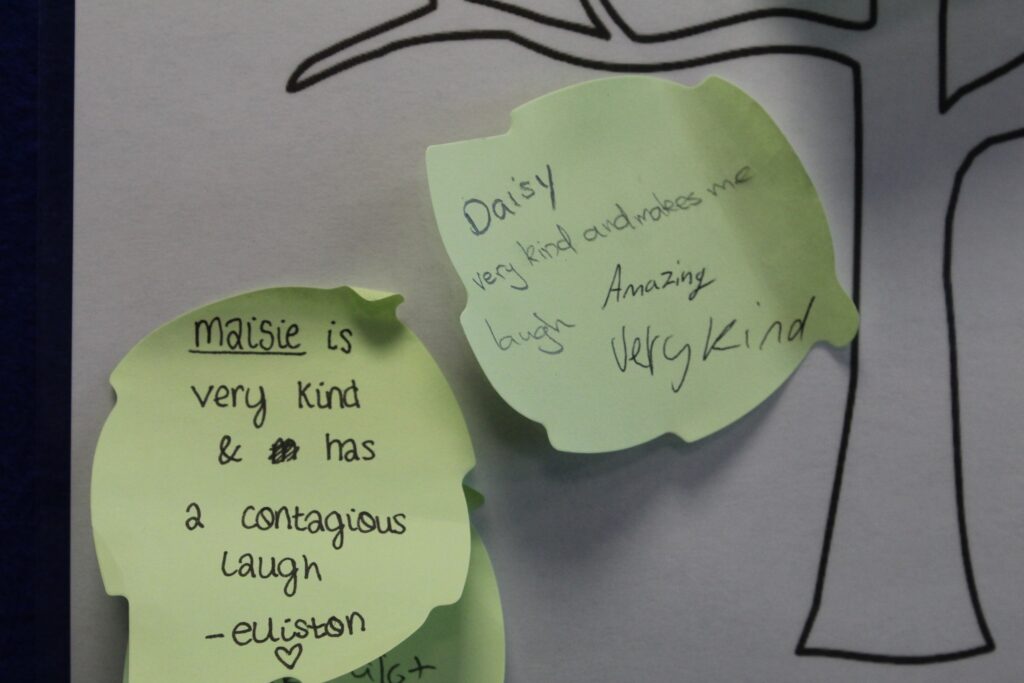 Daisy
very kind and makes me
laugh Amazing
very kind
maisie is
very kind
& has
a contagious
laugh
- elliston